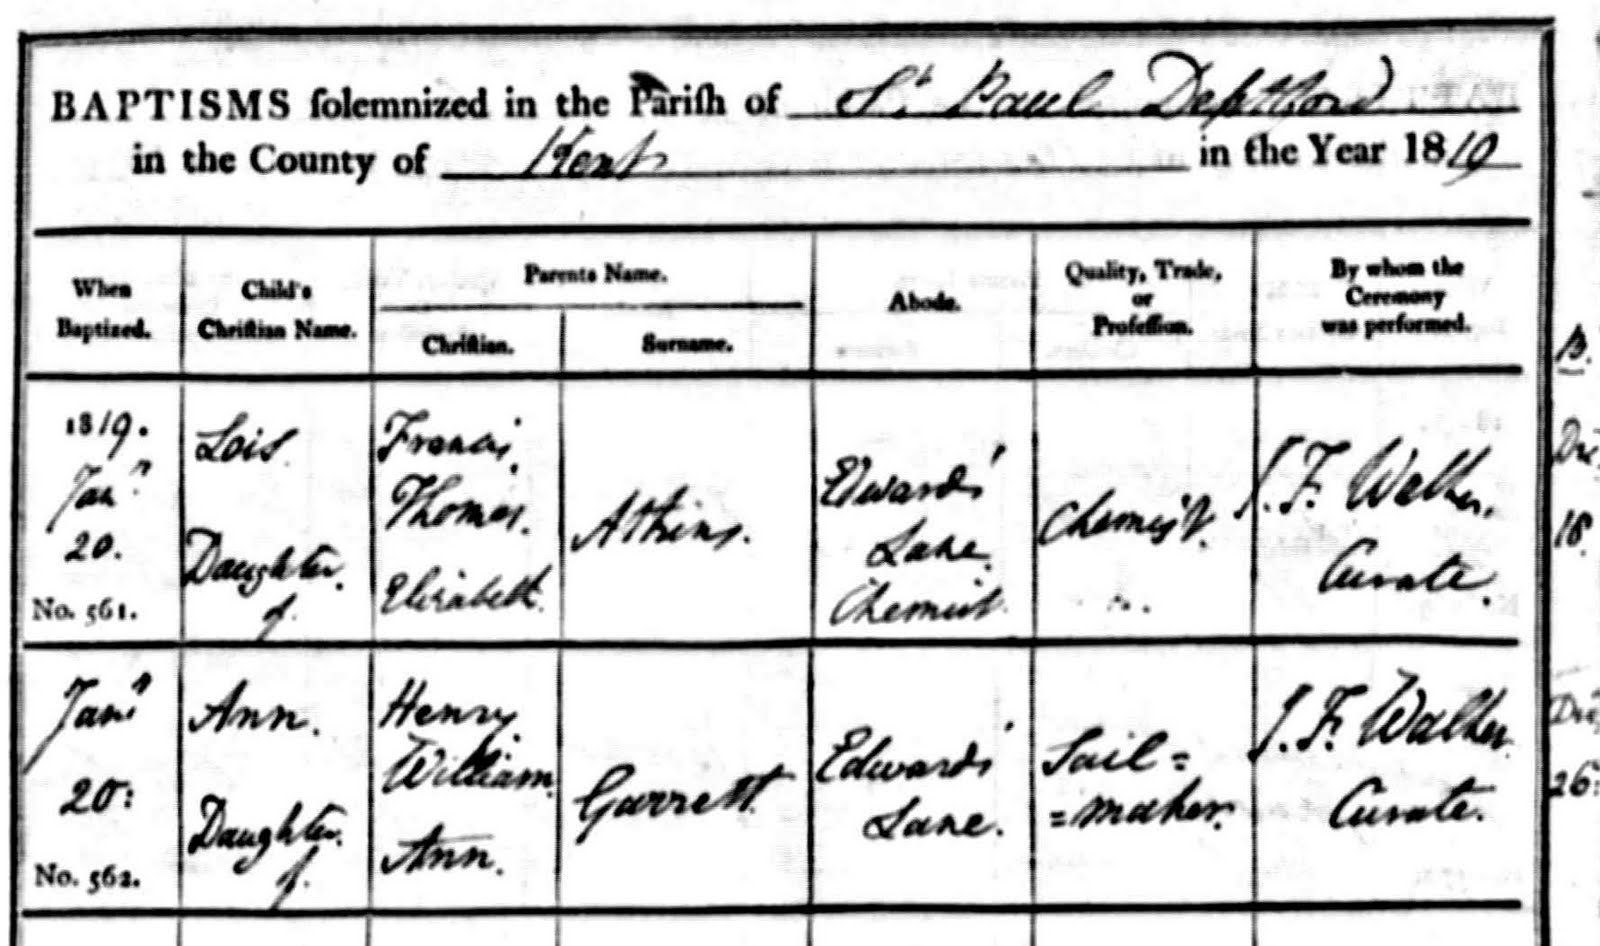 BAPTISMS ſolemnized in the Pariſh of St Paul Deptford
in the County of Kent in the Year 1819
When
Baptized.
Child's
Chriſtian Name.
Parents Name.
Chriſtian.
Surname.
Abode.
Quality, Trade,
or
Profeſſion.
By whom the
Ceremony
was performed.
1819.
Jany
20.
No. 561.
Lois
Daughter
of
Francis
Thomas.
Elizabeth.
Atkins.
Edwards'
Lane
Chemist.
Chemist.
J. F. Walker,
Curate.
Jany
20:
No. 562.
Ann.
Daughter
of.
Henry
William
Ann.
Garrett
Edwards'
Lane.
Sail=
=maker.
J. F. Walker
Curate.
B.
18
26: